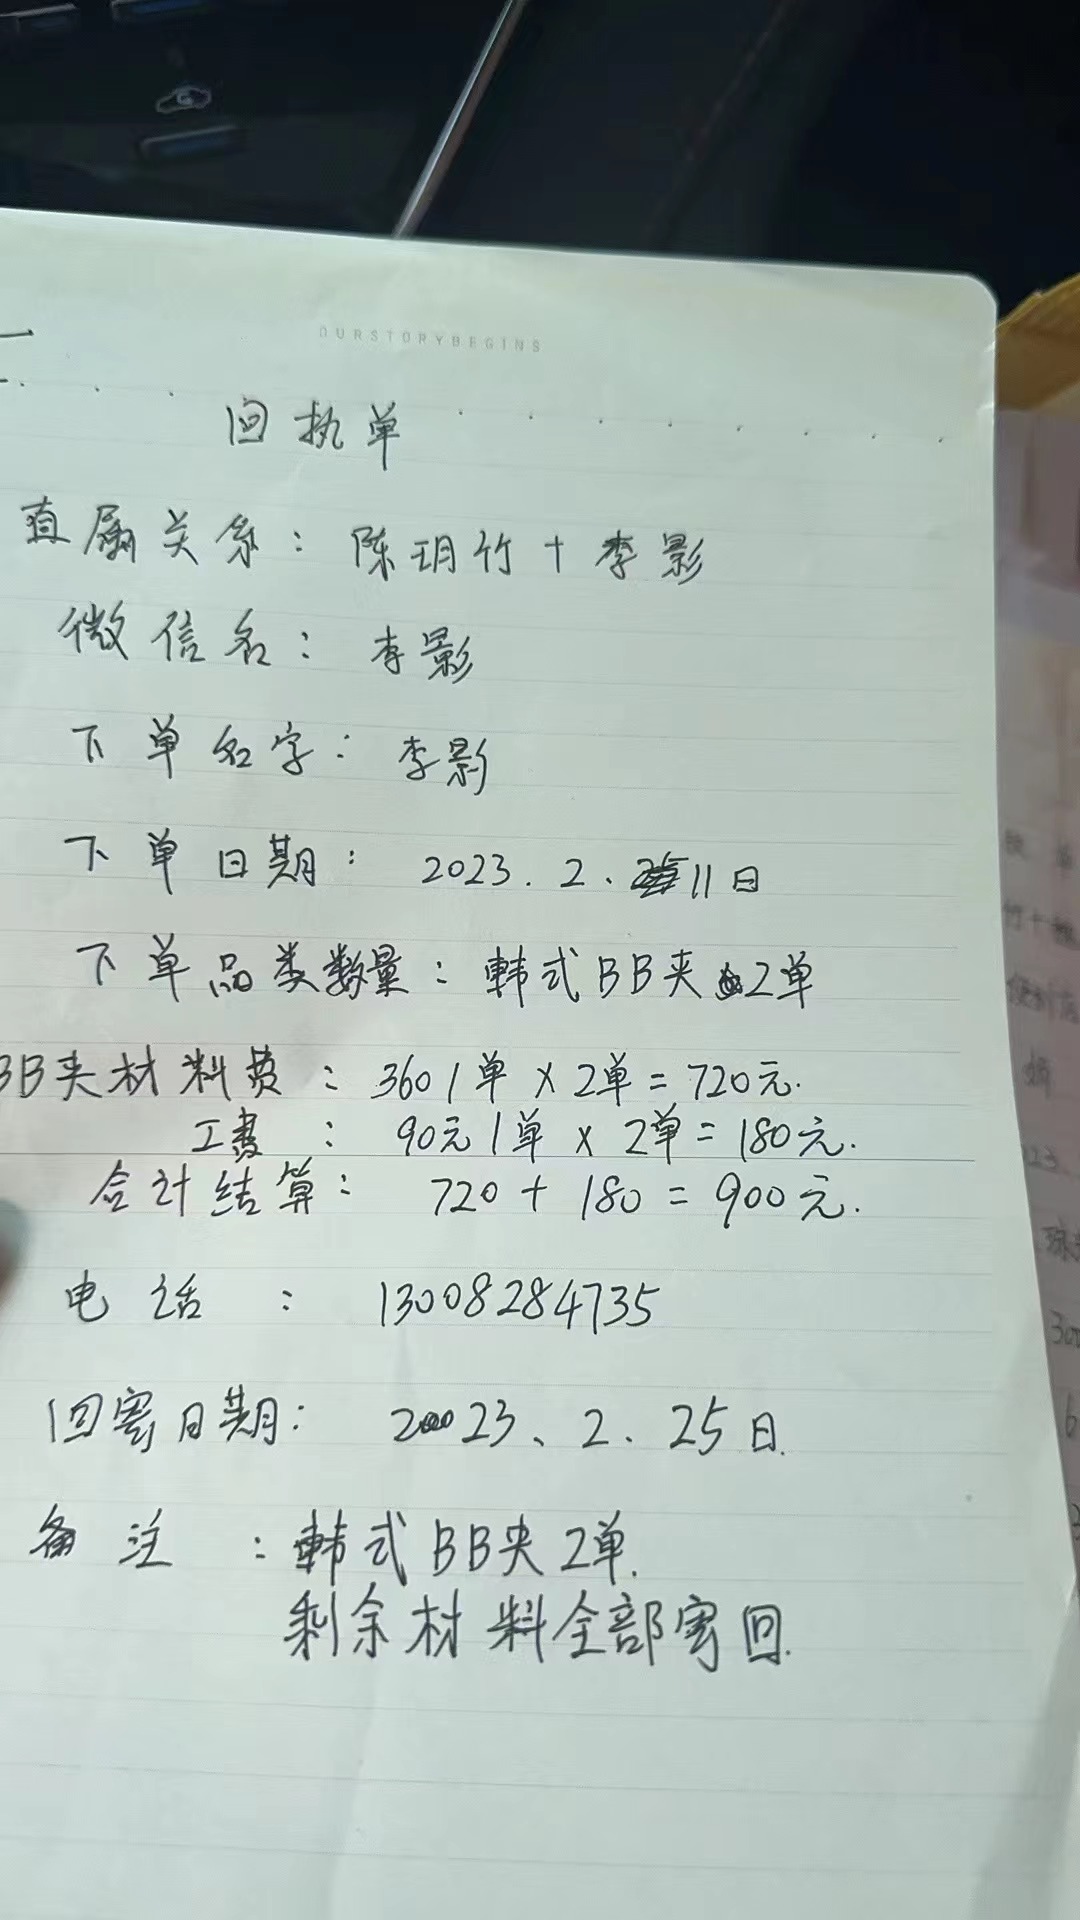 OURSTORYBEGINS
回执单
直属关系：陈玥竹+李影
微信名：李影
下单名字：李影
下单日期：2023.2.11日
下单品类数量：韩式BB夹2单
BB夹材料费：360/单×2单=720元.
工费：90元/单×2单=180元.
合计结算：720+180=900元.
电话：13008284735
回寄日期：2023、2.25日.
备注：韩式BB夹2单.
剩余材料全部寄回.